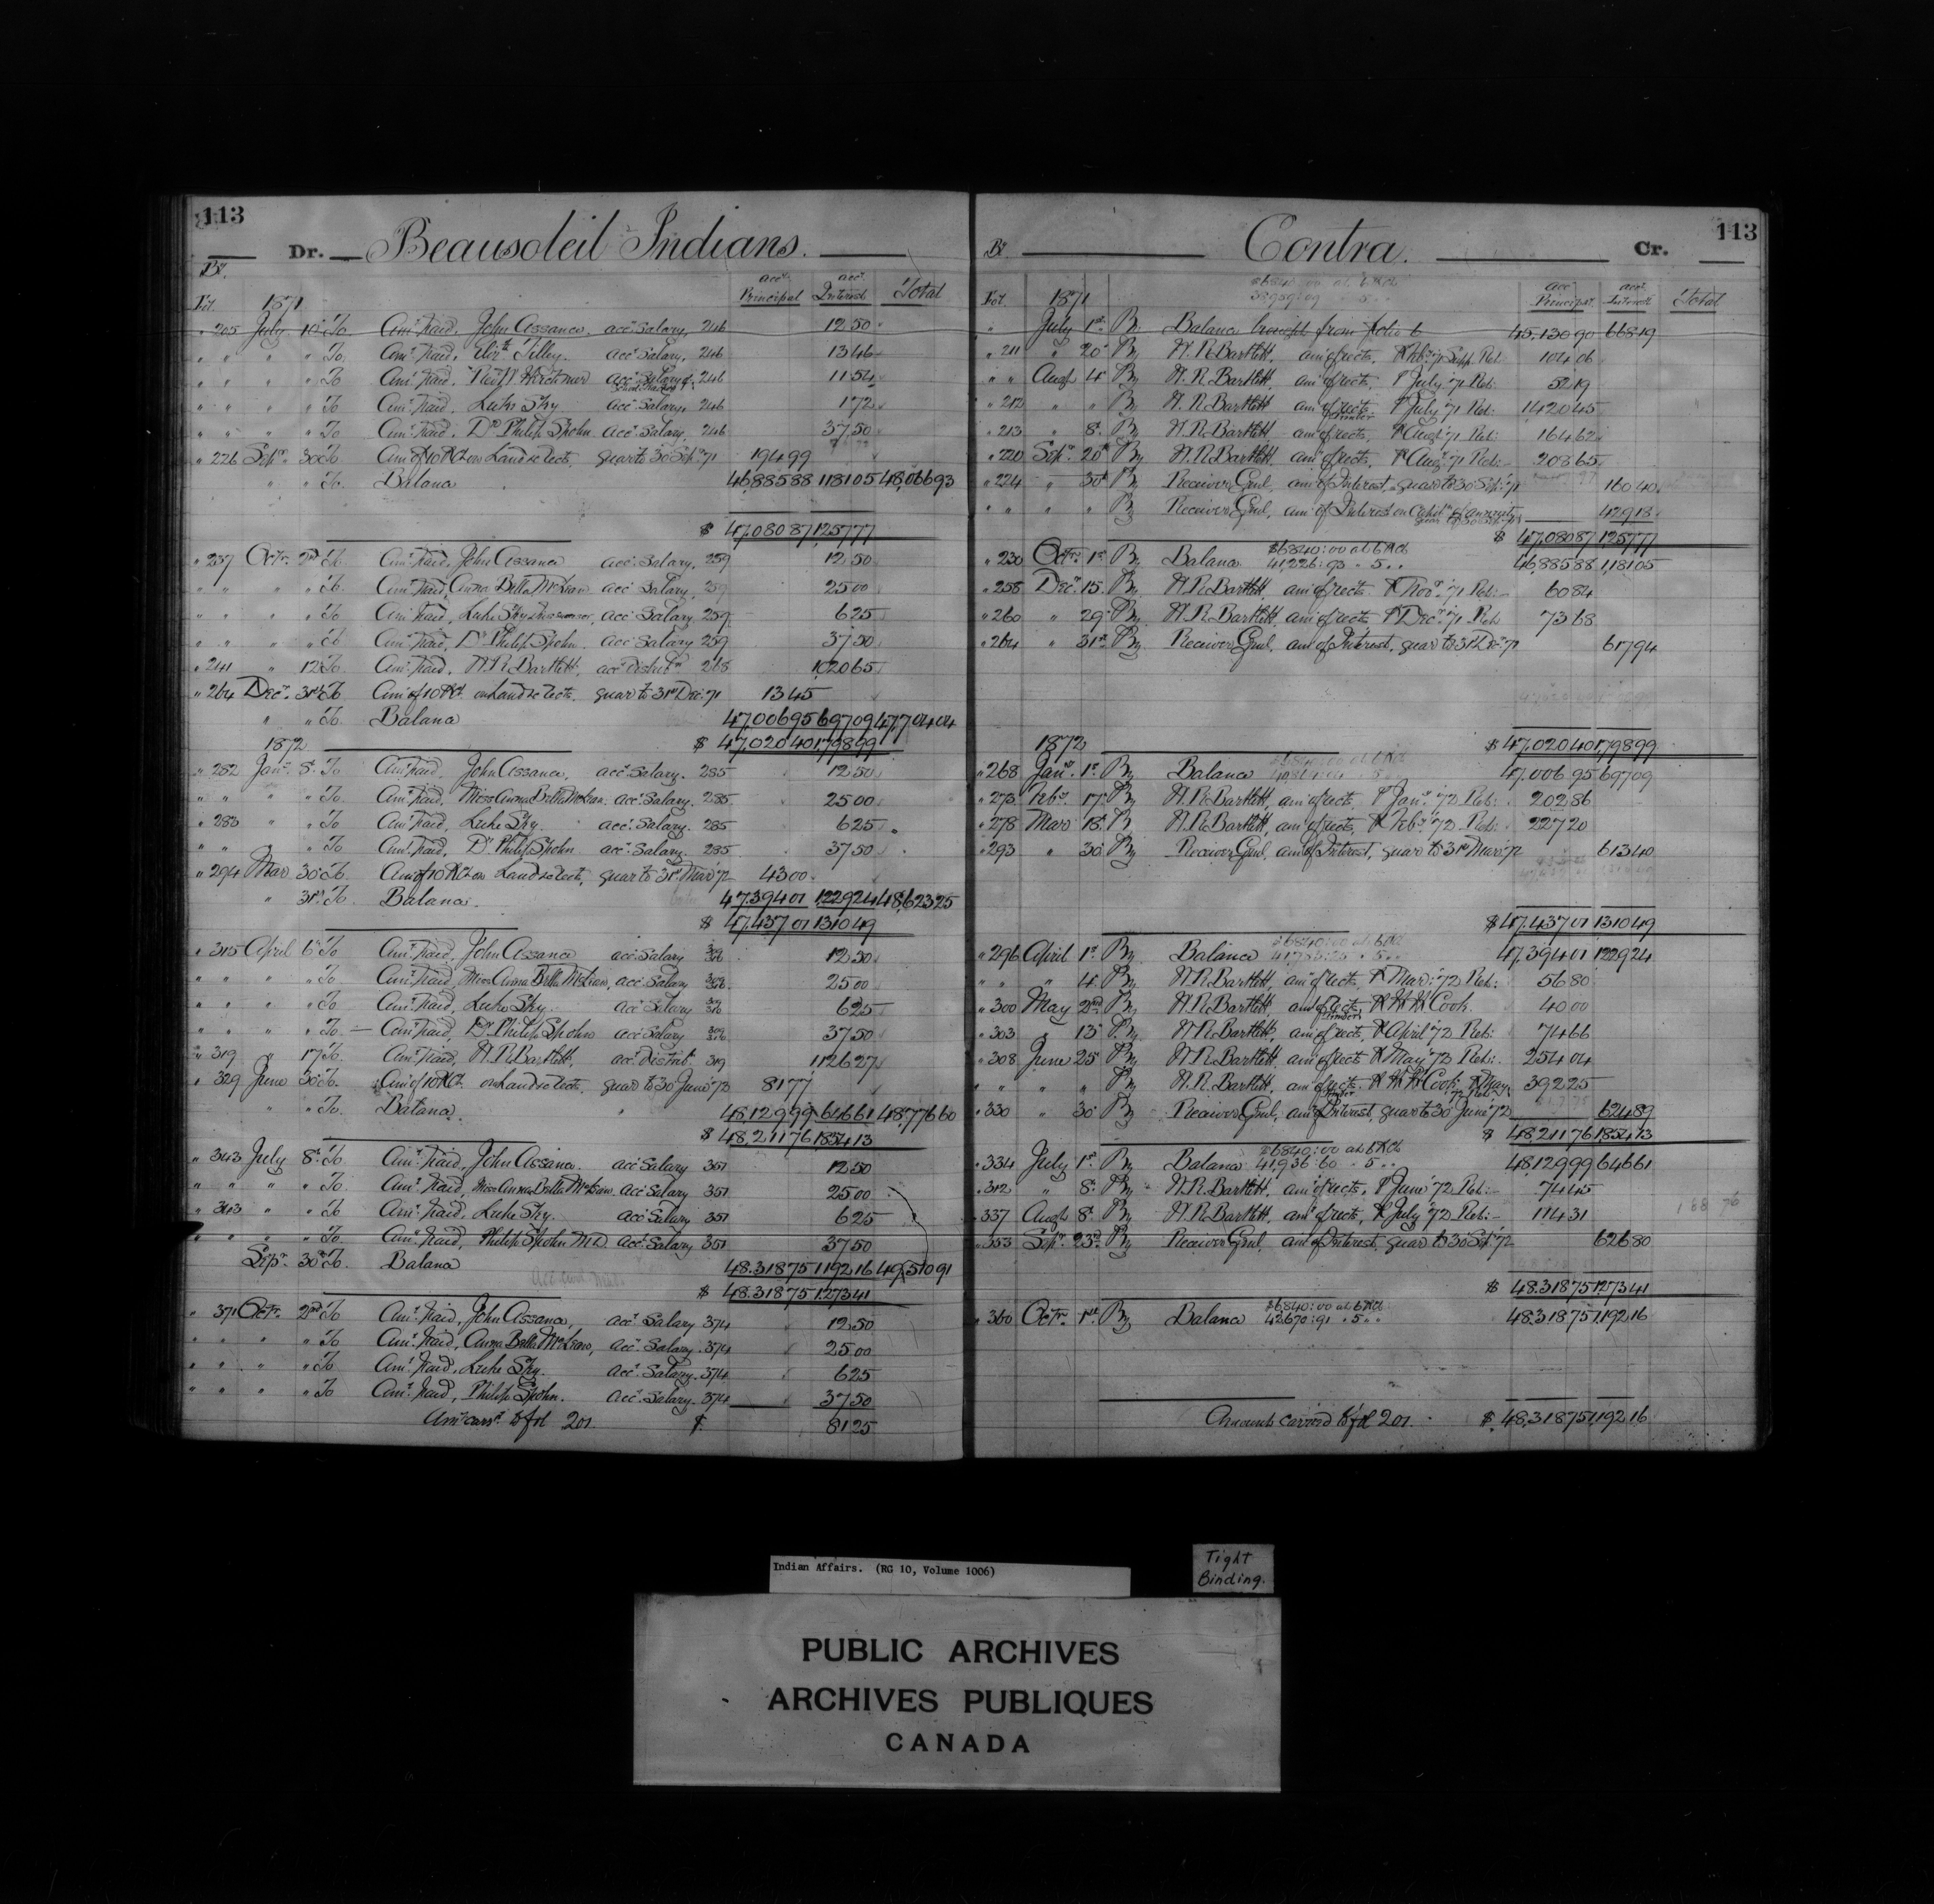 113
Dr. Beausoleil Indians.
Bk. Fol. 1871 acct. Principal acct. Interest Total
" 205 July 10 To Amt. Paid, John Assance. acct. Salary, 246 12 50
" " " " To Amt. Paid, Tilley. acct. Salary, 246 13 46
" " " " To Amt. Paid, acct. Salary 246 11 54
" " " " To Amt. Paid, Luke Sky acct. Salary, 246 1 72
" " " " To Amt. Paid, Dr. Philip Spohn acct. Salary, 246 37 50
" 226 Sepr. 30 To Amt of 10 P Ct on Land collects, quar to 30 Sep 71 194 99
" " To Balance 46,885 88 1181 05 48,066 93
$ 47,080 87 1257 77
" 237 Octr. 2nd To Amt. Paid, John Assance acct. Salary 259 12 50
" " " " To Amt. Paid, Anna Bella McLean acct Salary, 259 25 00
" " " " To Amt. Paid, Luke Sky acct Salary 259 6 25
" " " " To Amt. Paid, Dr. Philip Spohn acct Salary 259 37 50
" 241 " 12 To Amt. Paid, W. R. Bartlett, acct Distribtn 268 1020 65
" 264 Decr. 31st To Amt of 10 P Ct on Land collects. quar to 31st Dec. 71 13 45
" " To Balance 47,006 95 697 09 47,704 04
$ 47,020 40 1798 99
1872
" 282 Jany. 8 To Amt. paid, John Assance, acct. Salary. 285 12 50
" " " " To Amt. Paid, Miss Anna Bella McLean. acct. Salary. 285 25 00
" 283 " " To Amt. Paid, Luke Sky. acct. Salary. 285 6 25
" " " To Amt. Paid, Dr. Philip Spohn acct. Salary. 285 37 50
" 294 Mar 30 To Amt of 10 P Ct on Land collects, quar to 31st Mar 72 43 00
" 31st To Balance. 47,394 01 1229 24 48,623 25
$ 47,437 01 1310 49
" 315 April 6 To Amt. Paid, John Assance acct Salary 12 50
" " " " To Amt. Paid, Miss Anna Bella McLean, acct. Salary 25 00
" " " " To Amt. Paid, Luke Sky. acct Salary 6 25
" " " " To Amt. Paid, Dr. Philip Spohn acct Salary 37 50
" 319 " 17 To Amt. Paid, W. R. Bartlett, acct Distribt 319 1126 27
" 329 June 30 To Amt of 10 P Ct on Land collects, quar to 30 June 72 81 77
" " To Balance. 48,129 99 646 61 48,776 60
$ 48,211 76 1854 13
" 343 July 8 To Amt. Paid, John Assance. acct Salary 351 12 50
" " " " To Amt. Paid, Miss Anna Bella McLean. acct Salary 351 25 00
" 343 " " To Amt. Paid, Luke Sky. acct Salary 351 6 25
" " " " To Amt. Paid, Philip Spohn M.D. acct Salary 351 37 50
Sepr. 30 To Balance 48,318 75 1192 16 49,510 91
$ 48,318 75 1273 41
" 371 Octr. 2nd To Amt. Paid, John Assance, acct. Salary 374 12 50
" " " " To Amt. Paid, Anna Bella McLean, acct. Salary. 374 25 00
" " " " To Amt. Paid, Luke Sky. acct. Salary. 374 6 25
" " " " To Amt. Paid, Philip Spohn. acct. Salary. 374 37 50
Amt carrd. to fol 201. $ 81 25
Bk. Contra. Cr. 113
Fol. 1871 acct Principal. acct. Interest Total
" July 1st. By Balance brought from folio 6 45,130 90 668 19
" 211 " 20 By W. R. Bartlett, amt of collects, P Feby 71 Supp. Ret. 104 06
" " Augt 4 By W. R. Bartlett, amt of collects, P July 71 Ret: 52 19
" 212 " " By W. R. Bartlett amt of collects Timber P July 71 Ret: 1420 45
" 213 8 By W. R. Bartlett amt of collects, P Augt 71 Ret: 164 62
" 220 Sepr. 20 By W. R. Bartlett, amt of collects, P Augt 71 Ret: 208 65
" 224 " 30 By Receiver Genl, amt of Interest, quar to 30 Sep. 71 160 40
" " " " By Receiver Genl, amt of Interest on Capitn of annuity quar to 30 Sep. 71 429 18
$ 47,080 87 1257 77
" 230 Octr. 1st. By Balance $6840:00 at 6 P Ct 41,226:93 " 5 " " 46,885 88 1,181 05
" 258 Decr. 15 By W. R. Bartlett, amt of collects P Novr 71 Ret: 60 84
" 260 " 29 By W. R. Bartlett, amt of collects P Decr 71 Ret 73 68
" 264 " 31st By Receiver Genl, amt of Interest, quar to 31 Dec 71 617 94
$ 47,020 40 1798 99
1872
" 268 Jany. 1st By Balance 47,006 95 697 09
" 273 Feby. 17 By W. R. Bartlett, amt of collects, P Jany. 72 Ret: 202 86
" 278 Mar 18 By W. R. Bartlett, amt of collects, P Feby. 72 Ret: 227 20
" 293 " 30 By Receiver Genl, amt of Interest, quar to 31st Mar 72 613 40
$ 47,437 01 1310 49
" 296 April 1st By Balance $6840:00 at 6 P Ct 41,783:25 " 5 " " 47,394 01 1229 24
" " " 4 By W. R. Bartlett, amt of collects, P Mar. 72 Ret: 56 80
" 300 May 2nd By W. R. Bartlett, amt of collects, Timber P Cook. 40 00
" 303 " 13 By W. R. Bartlett, amt of collects P April 72 Ret: 74 66
" 308 June 25 By W. R. Bartlett, amt of collects P May 72 Ret: 254 04
" " " " By W. R. Bartlett, amt of collects Timber P Cook P May 72 Ret: 392 25
" 330 " 30 By Receiver Genl, amt of Interest, quar to 30 June 72 624 89
$ 48,211 76 1854 13
" 334 July 1st By Balance $6840:00 at 6 P Ct 41,936:60 " 5 " " 48,129 99 646 61
" 312 " 8 By W. R. Bartlett, amt of collects, P June 72 Ret: 74 45
" 337 Augt 8 By W. R. Bartlett, amt of collects, P July 72 Ret: 114 31
" 353 Sepr. 23rd By Receiver Genl, amt of Interest, quar to 30 Sep. 72 626 80
$ 48,318 75 1273 41
" 360 Octr. 1st By Balance $6840:00 at 6 P Ct 42670:91 " 5 " " 48,318 75 1,192 16
Amounts carried to fol 201. $ 48,318 75 1,192 16
Indian Affairs. (RG 10, Volume 1006)
Tight
Binding.
PUBLIC ARCHIVES
ARCHIVES PUBLIQUES
CANADA